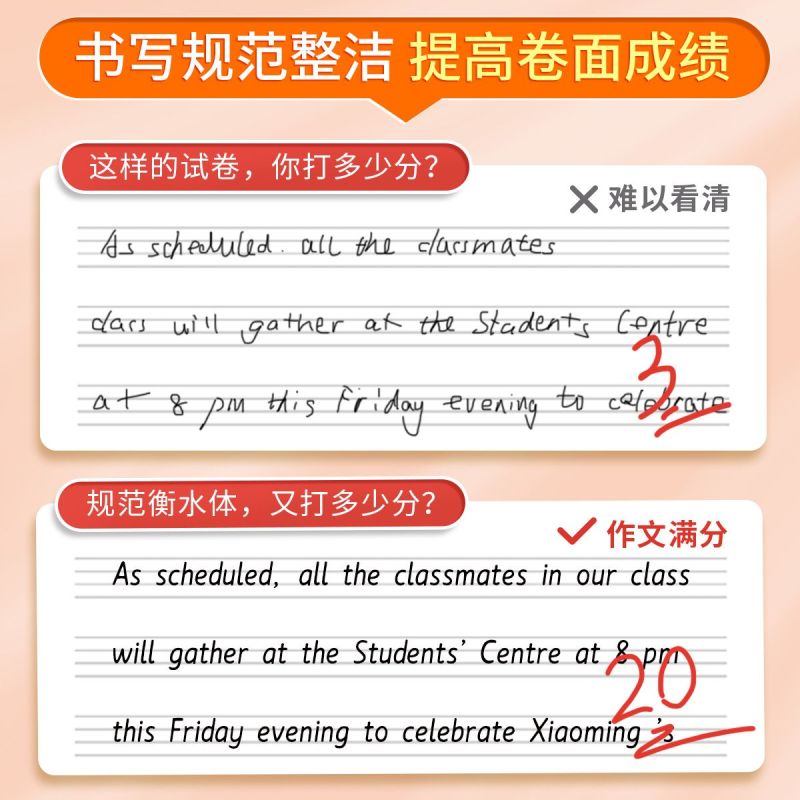 书写规范整洁 提高卷面成绩
这样的试卷，你打多少分？
难以看清
As scheduled. all the classmates
class will gather at the Students Centre
at 8 pm this Friday evening to celebrate
3
规范衡水体，又打多少分？
作文满分
As scheduled, all the classmates in our class
will gather at the Students' Centre at 8 pm
this Friday evening to celebrate Xiaoming 's
20